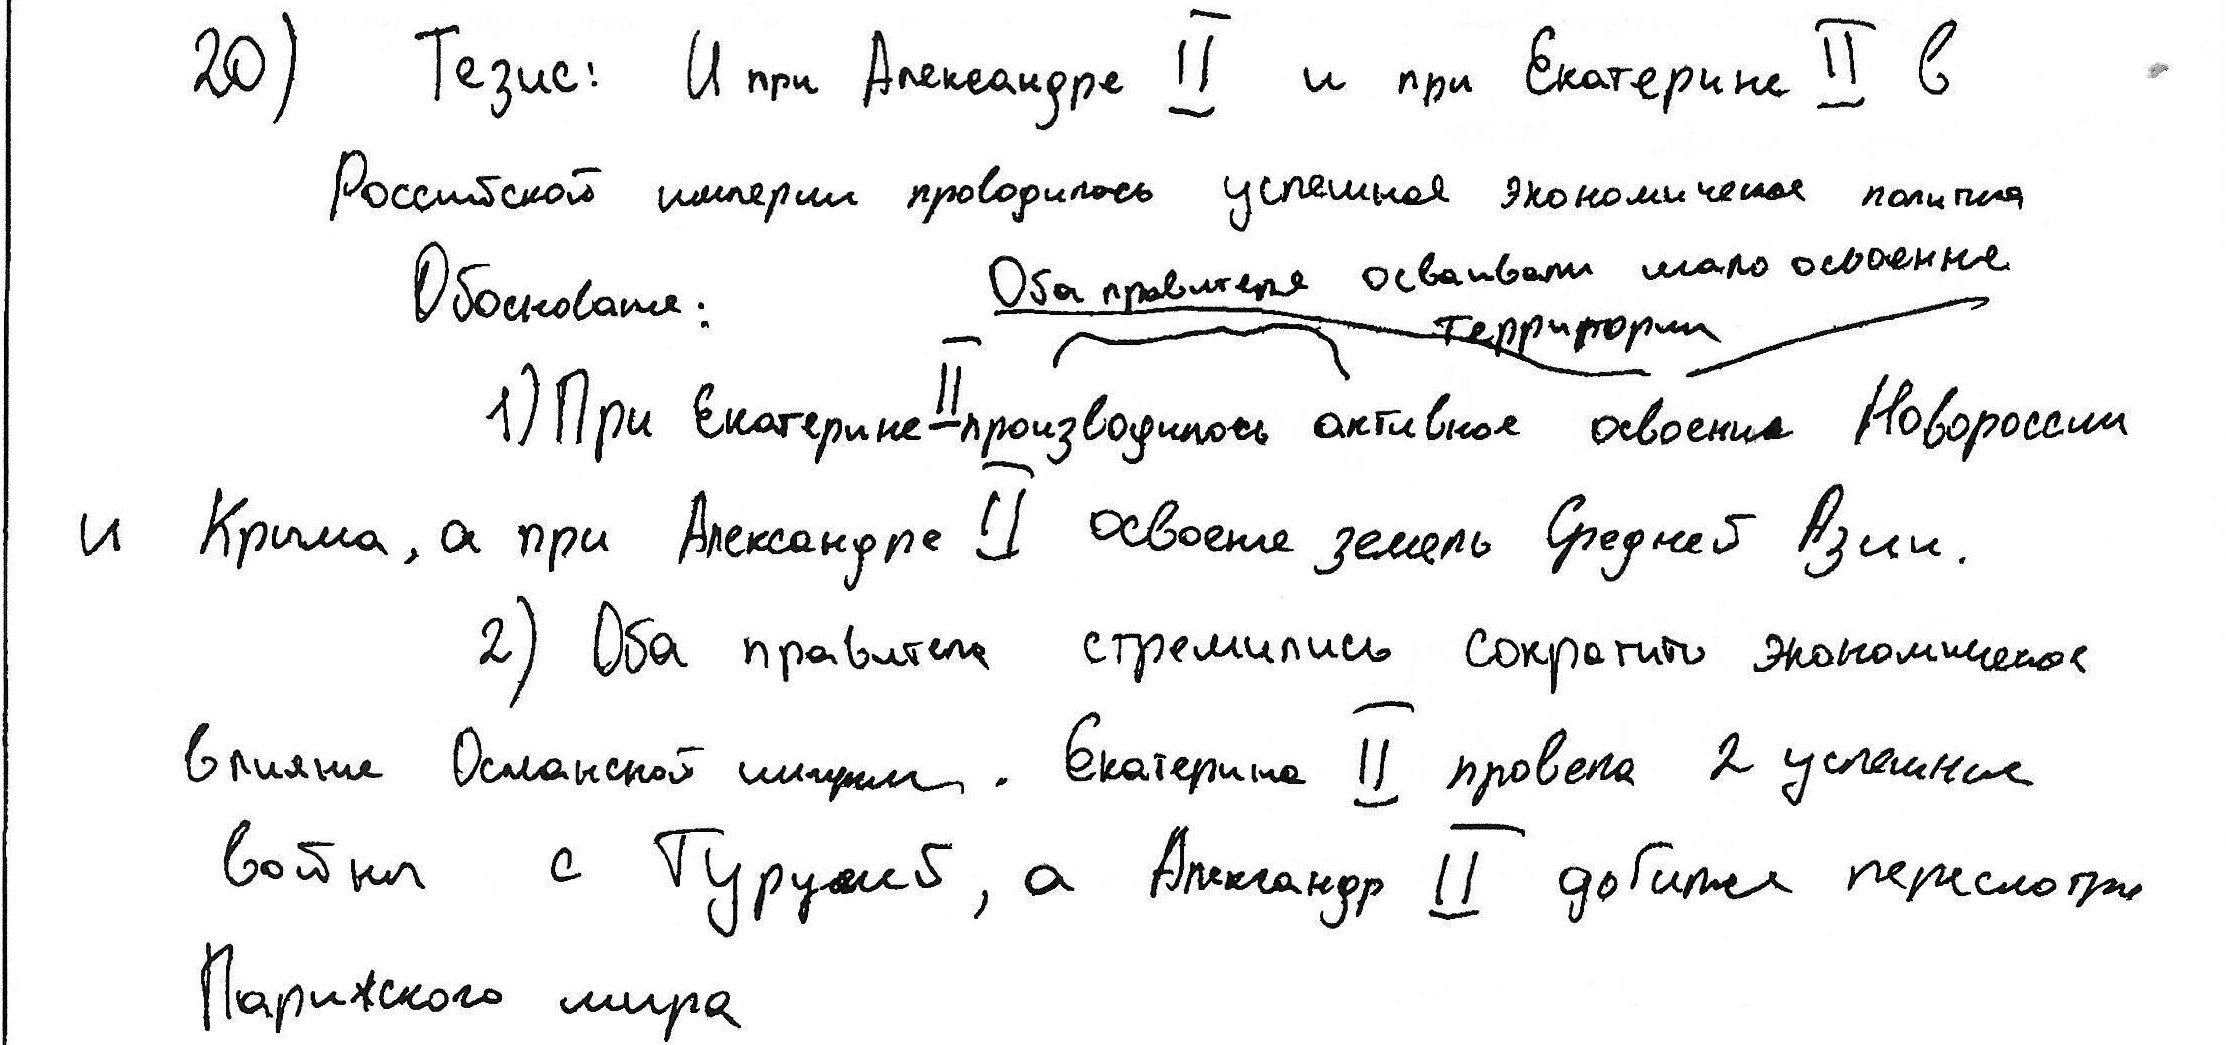 20) Тезис: И при Александре II и при Екатерине II в
Российской империи проводилось успешная экономическая политика
Обоснование: Оба правителя осваивали мало освоенные
территории
1) При Екатерине II производилось активное освоение Новороссии
и Крыма, а при Александре II освоение земель Средней Азии.
2) Оба правителя стремились сократить экономическое
влияние Османской империи. Екатерина II провела 2 успешные
войны с Турцией, а Александр II добился пересмотра
Парижского мира